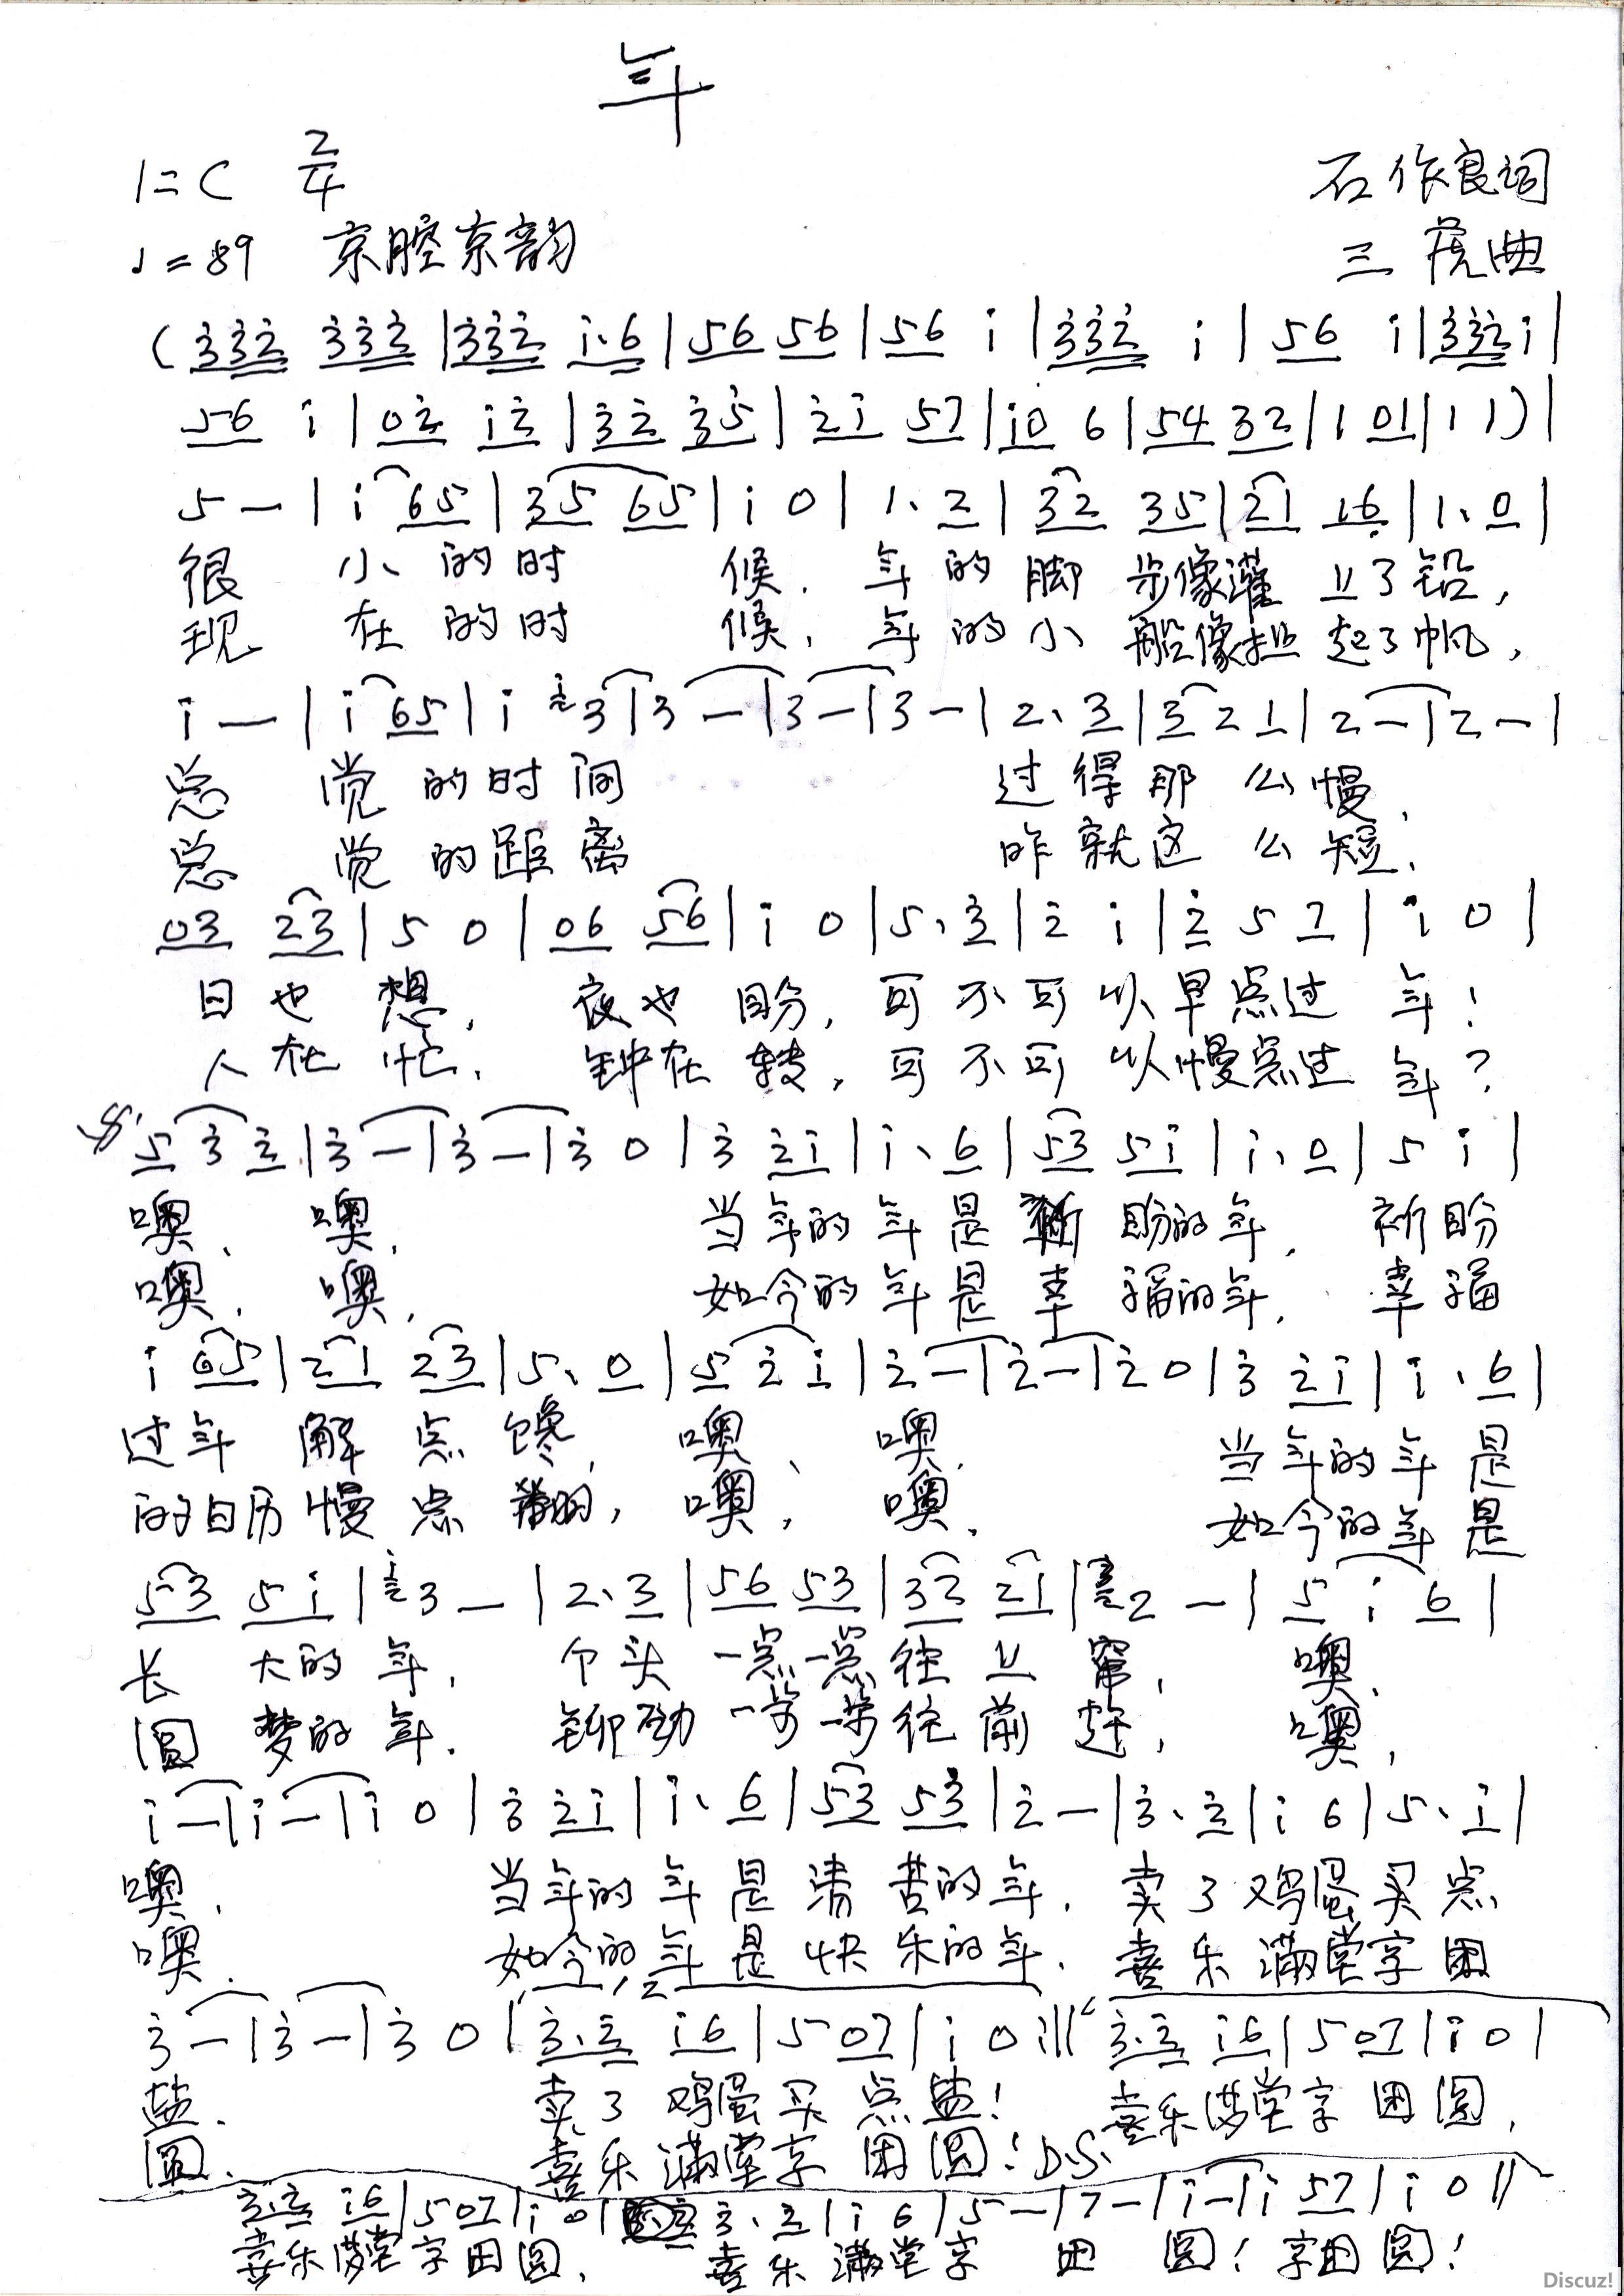 年
1=C 2/4
石作良词
♩=89 京腔京韵
三虎曲
(3̇3̇2̇ 3̇3̇2̇ | 3̇3̇2̇ 1̇·6 | 56 56 | 56 1̇ | 3̇3̇2̇ 1̇ | 56 1̇ | 3̇3̇2̇ 1̇ |
56 1̇ | 02̇ 1̇2̇ | 3̇2̇ 3̇5̇ | 2̇1̇ 57 | 1̇0 6 | 54 32 | 1 01 | 1 1) |
5 — | 1̇ 65 | 35 65 | 1̇ 0 | 1· 2 | 32 35 | 21 16̣ | 1· 0 |
很 小的时 候, 年的脚 步像灌 上了铅,
现 在的时 候, 年的小 船像扯 起了帆,
1̇ — | 1̇ 65 | 1̇ 3 | 3 — | 3 — | 3 — | 2· 3 | 3 2 1 | 2 — | 2 — |
总 觉的时间 过得那 么慢,
总 觉的距离 咋就这 么短,
03 23 | 5 0 | 06 56 | 1̇ 0 | 5· 3̇ | 2̇ 1̇ | 2̇ 5 7 | 1̇ 0 |
日也 想, 夜也 盼, 可不可以早点过 年!
人在 忙, 钟在 转, 可不可以慢点过 年?
5 3̇ 3̇ | 3̇ — | 3̇ — | 3̇ 0 | 3̇ 2̇1̇ | 1̇· 6 | 53 51̇ | 1̇· 0 | 5 1̇ |
噢, 噢, 当年的年是 盼的年, 祈盼
噢, 噢, 如今的年是幸 福的年, 幸福
1̇ 65 | 21 23 | 5· 0 | 5 2̇ 1̇ | 2̇ — | 2̇ — | 2̇ 0 | 3̇ 2̇1̇ | 1̇· 6 |
过年 解点馋, 噢, 噢, 当年的年是
的日历慢点翻, 噢, 噢, 如今的年是
53 51̇ | 3 — | 2· 3 | 56 53 | 32 21 | 2 — | 5 1̇ 6 |
长 大的年, 个头一点一点往上窜, 噢,
圆 梦的年, 铆劲一步一步往前赶, 噢,
1̇ — | 1̇ — | 1̇ 0 | 3̇ 2̇1̇ | 1̇· 6 | 53 53̇ | 2̇ — | 3̇· 2̇ | 1̇ 6 | 5· 1̇ |
噢, 当年的年是清苦的年, 卖了鸡蛋买点
噢, 如今的年是快乐的年, 喜乐满堂享团
3̇ — | 3̇ — | 3̇ 0 | 3̇·2̇ 1̇6 | 5 07 | 1̇ 0 :|| 3̇·2̇ 1̇6 | 5 07 | 1̇ 0 |
盐, 卖了鸡蛋买点盐! 喜乐满堂享团圆,
圆, 喜乐满堂享团圆! D.S.
3̇·2̇ 1̇6 | 5 07 | 1̇ 0 | 3̇· 2̇ | 1̇ 6 | 5 — | 7 — | 1̇ — | 1̇ 57 | 1̇ 0 ||
喜乐满堂享团圆, 喜乐满堂享 团 圆! 享团圆!
Discuz!